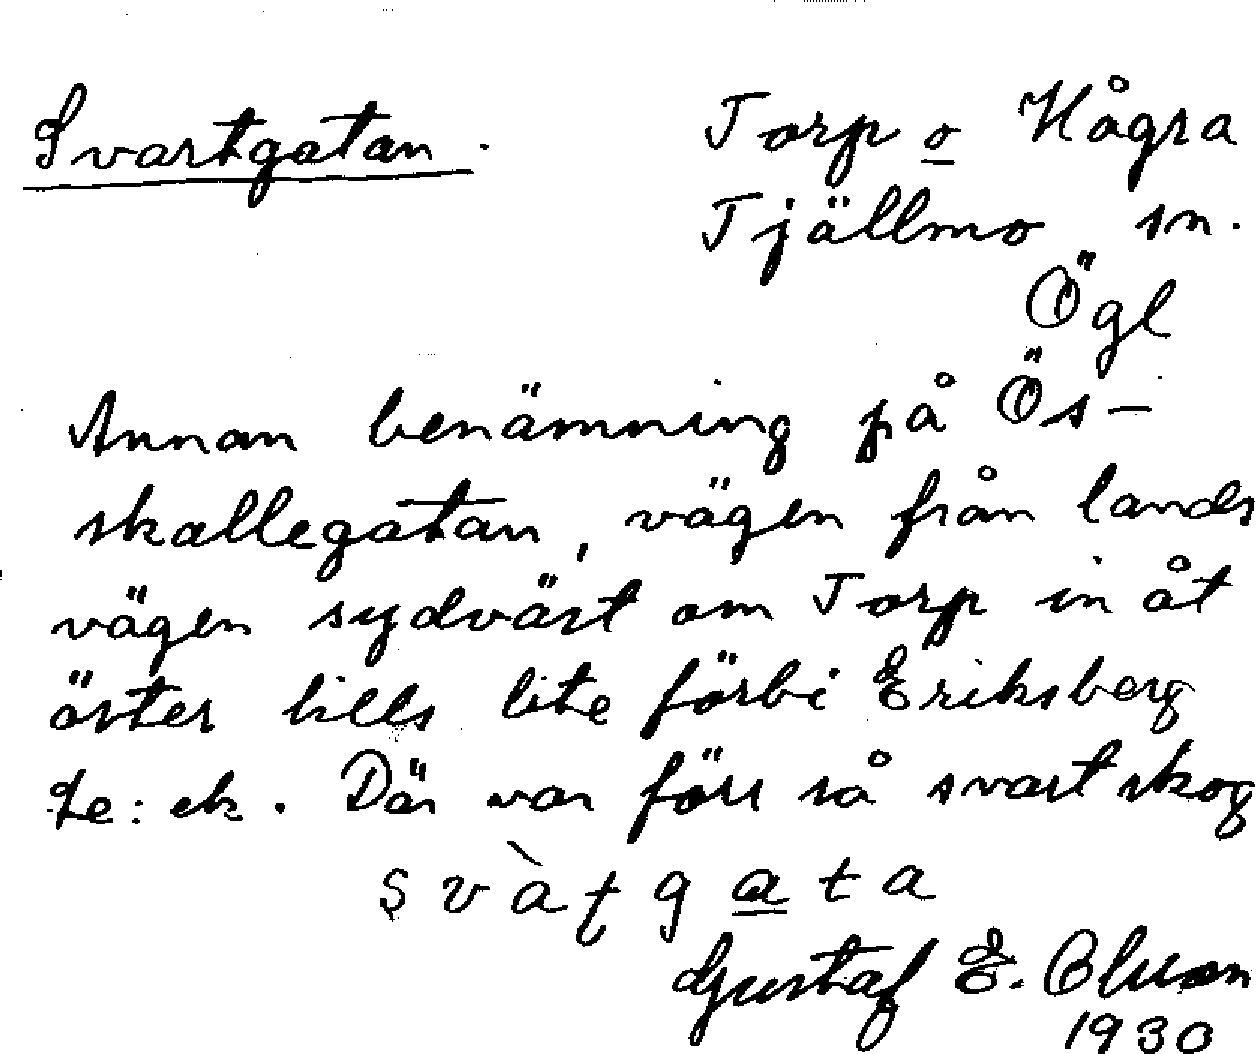 Svartgatan.
Torp o Hågra
Tjällmo sn.
Ögl
Annan benämning på Ös-
skallegatan, vägen från lands
vägen sydväst om Torp in åt
öster tills lite förbi Eriksberg
Där var förr så svart skog
svàtgata
Gustaf E. Olsson
1930